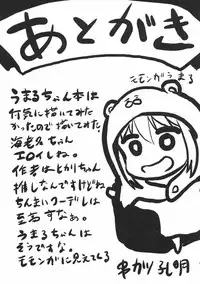 あとがき
モモンガうまる
うまるちゃん本は
何気に描いてみた
かったので描いてみた
海老名ちゃん
エロイしね。
作者はとかりちゃん
推しなんですけどね
ちんまいクーデレは
至高すなぁ。
うまるちゃんは
そうですな。
モモンガに見えてくる
串カツ孔明